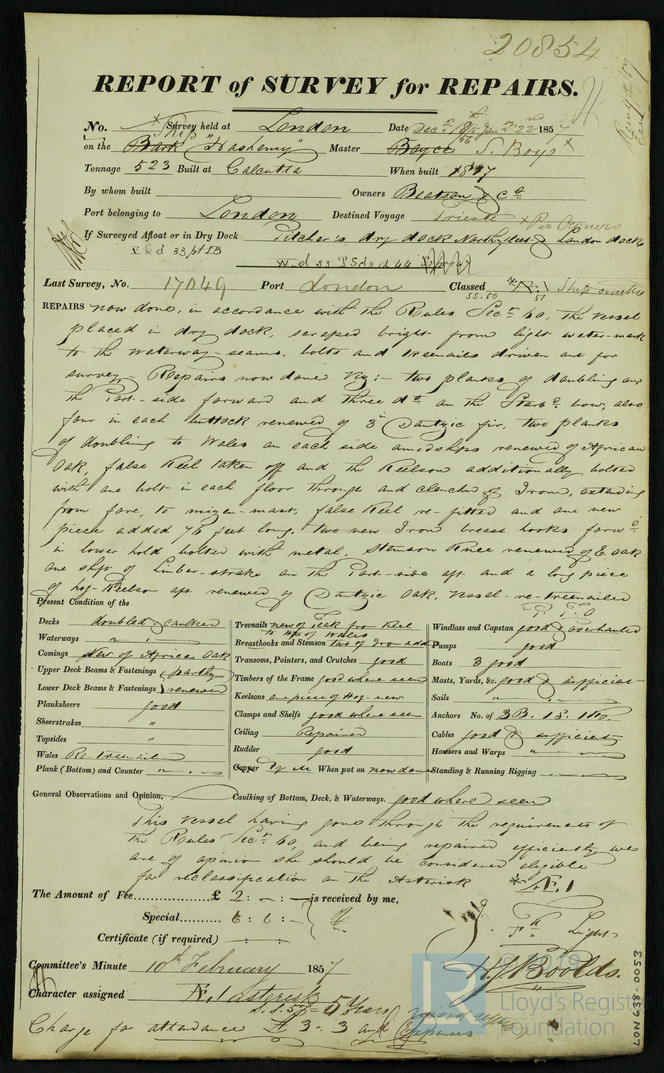 20854
REPORT of SURVEY for REPAIRS.
No. Survey held at London Date 185
on the Ship "Hashemy" Master S. Boys
Tonnage 523 Built at Calcutta When built 1817
By whom built Owners Beatson & Co
Port belonging to London Destined Voyage Trieste
If Surveyed Afloat or in Dry Dock Pitcher's dry dock Northfleet & London docks
Last Survey, No. 17049 Port London Classed
REPAIRS now done, in accordance with the Rules Sect. 60, the vessel
placed in dry dock, scraped bright from light water-mark
to the waterway-seams, bolts and treenails driven out for
survey. Repairs now done viz:- two planks of doubling on
the Port-side forward and three do on the Starbd bow, also
four in each buttock renewed of 3 Dantzic fir, two planks
of doubling to Wales on each side amidships renewed of African
Oak, false Keel taken off and the Keelson additionally bolted
with one bolt in each floor through and clenched of Iron, extending
from fore, to mizen-mast, false Keel re-fitted and one new
piece added 76 feet long. two new Iron breast hooks forwd
in lower hold bolted with metal, Stemson Knee renewed of E. oak
one shift of Limber-strake on the Port-side aft and a long piece
of hog-Keelson aft renewed of Dantzic Oak, vessel re-treenailed
P. T. O
Present Condition of the
Decks doubled & caulked
Waterways " "
Comings new of African Oak
Upper Deck Beams & Fastenings partly
Lower Deck Beams & Fastenings renewed
Planksheers good
Sheerstrakes "
Topsides "
Wales Re-treenailed
Plank (Bottom) and Counter "
Treenails new of Teak from Keel
to top of Wales
Breasthooks and Stemson two of Iron add
Transoms, Pointers, and Crutches good
Timbers of the Frame good where seen
Keelsons one piece of Hog- new
Clamps and Shelfs good where seen
Ceiling Repaired
Rudder good
Copper Y M When put on now done
Windlass and Capstan good & overhauled
Pumps good
Boats 3 good
Masts, Yards, &c. good & sufficient
Sails "
Anchors No. of 3B. 1S.
Cables good & sufficient
Hawsers and Warps "
Standing & Running Rigging
General Observations and Opinion, Caulking of Bottom, Deck, & Waterways. good where seen
This vessel having gone through the requirements of
the Rules Sect. 60, and being repaired efficiently we
are of opinion she should be considered eligible
for reclassification on the Asterisk *Æ.1
The Amount of Fee £ 2 : - : - is received by me,
Special 6 : 6 : -
Certificate (if required)
Light
H J Boolds.
Committee's Minute 10th February 1857
Character assigned Æ.1 asterisk
5 Years
Charge for attendance £ 3. 3 and
Expenses
LON 638-0053
© 2019
LR
Lloyd's Register
Foundation